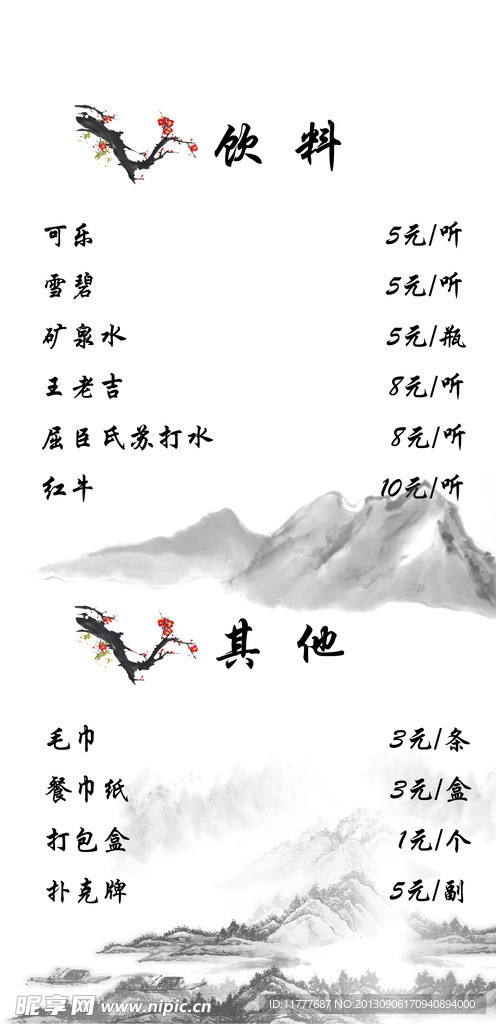 饮 料
可乐 5元/听
雪碧 5元/听
矿泉水 5元/瓶
王老吉 8元/听
屈臣氏苏打水 8元/听
红牛 10元/听
其 他
毛巾 3元/条
餐巾纸 3元/盒
打包盒 1元/个
扑克牌 5元/副
昵享网 www.nipic.cn
ID:11777687 NO:20130906170940894000